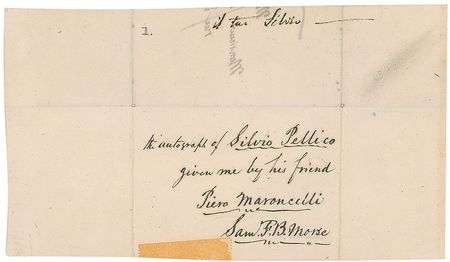 1.
il tuo Silvio
th' autograph of Silvio Pellico
given me by his friend
Piero Maroncelli
Sam. F. B. Morse